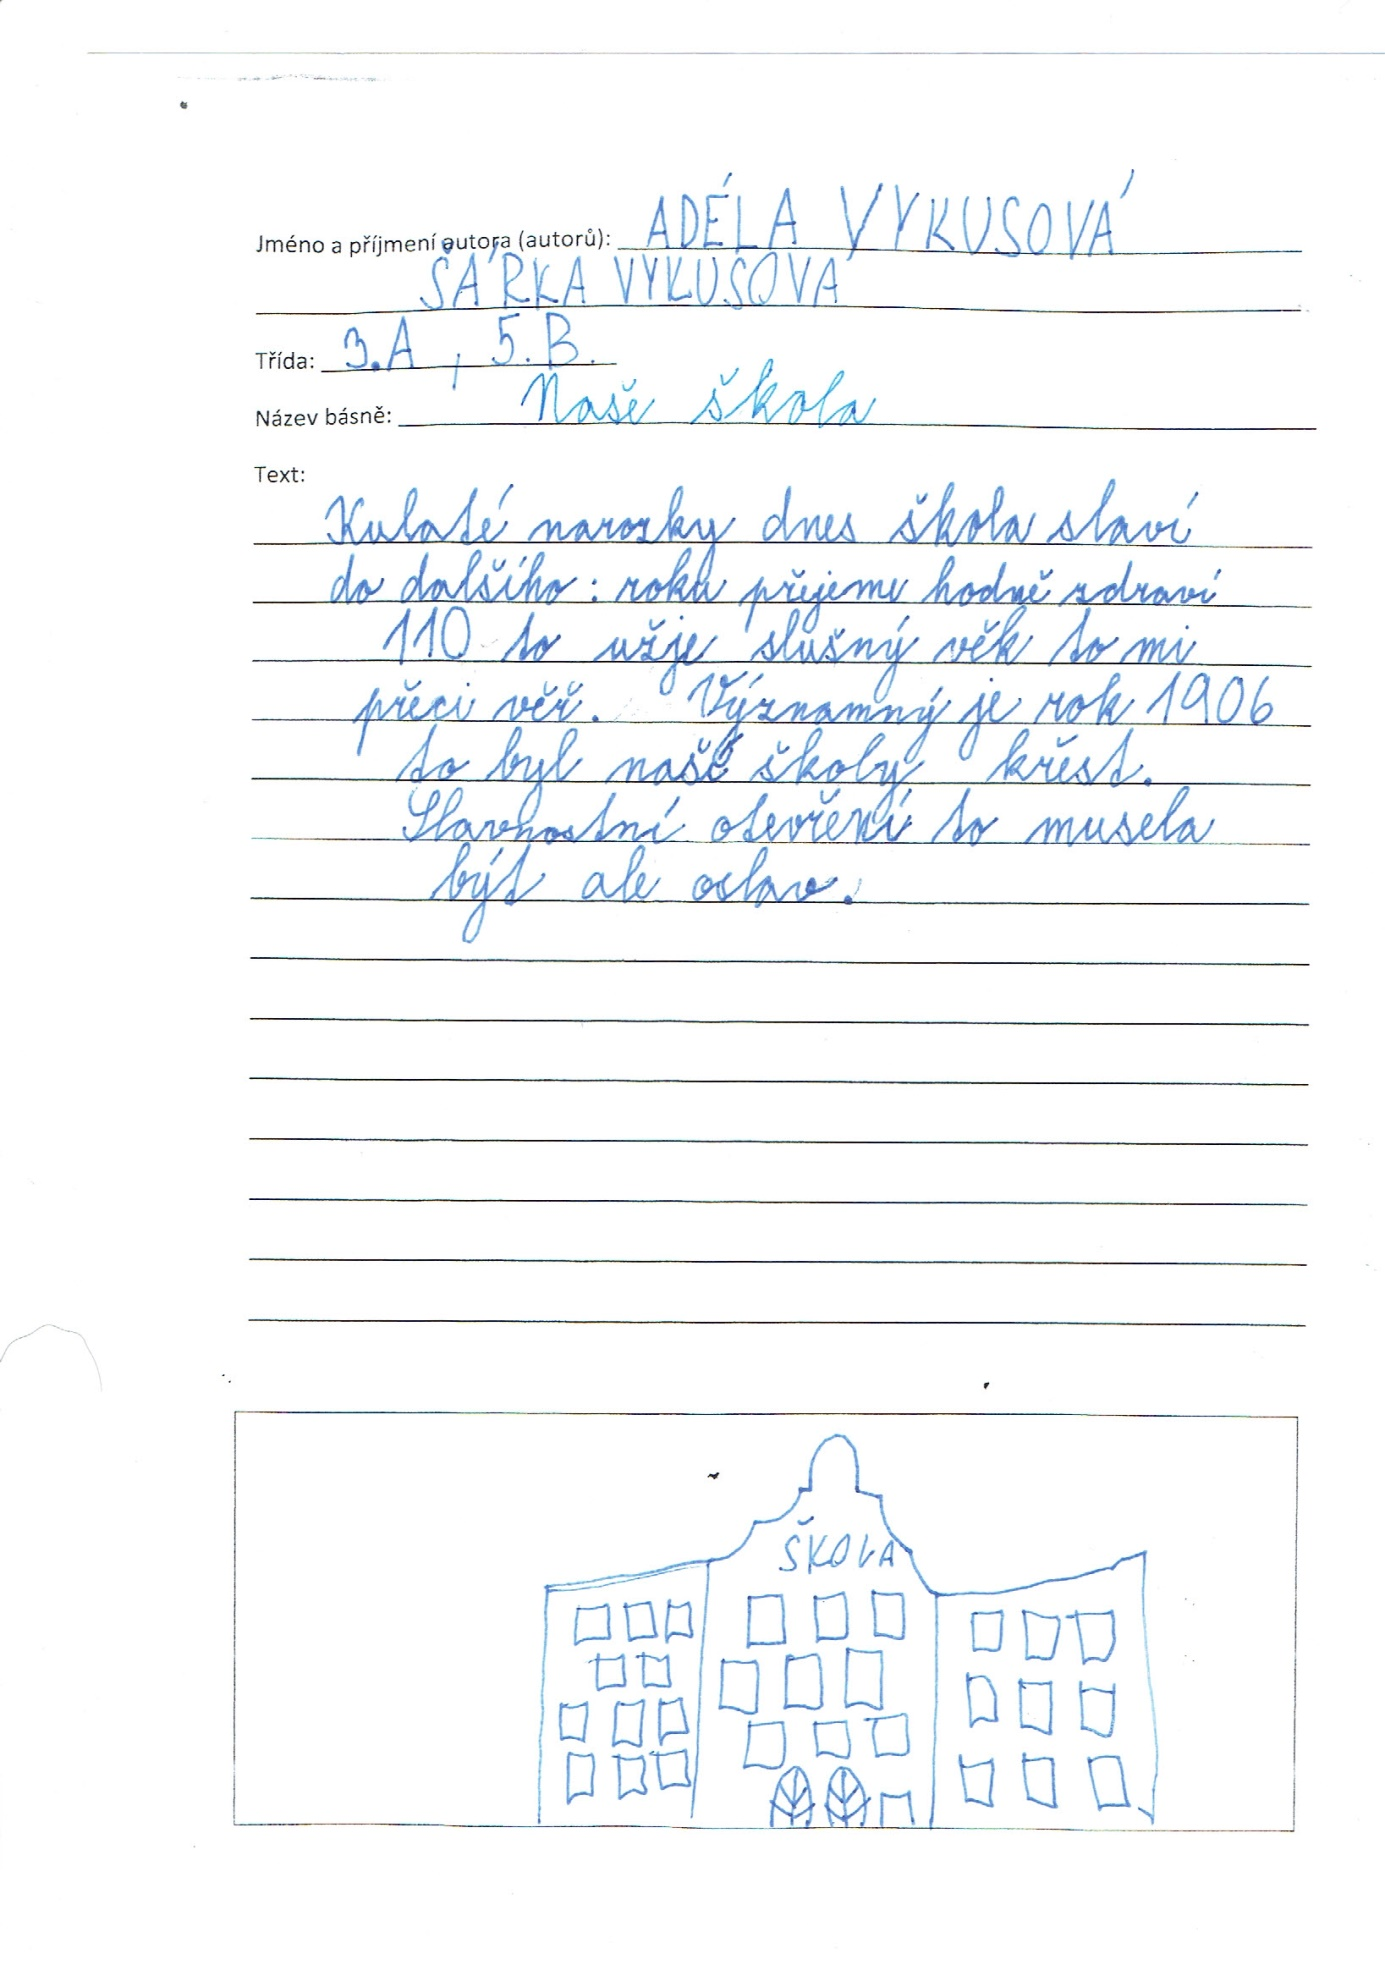 Jméno a příjmení autora (autorů): ADÉLA VYKUSOVÁ
ŠÁRKA VYKUSOVÁ
Třída: 3.A , 5.B.
Název básně: Naše škola
Text:
Kulaté narozky dnes škola slaví
do dalšího : roku přejeme hodně zdraví
110 to užje slušný věk to mi
přeci věř. Významný je rok 1906
to byl naší školy křest.
Slavnostní otevření to musela
být ale oslav.
ŠKOLA